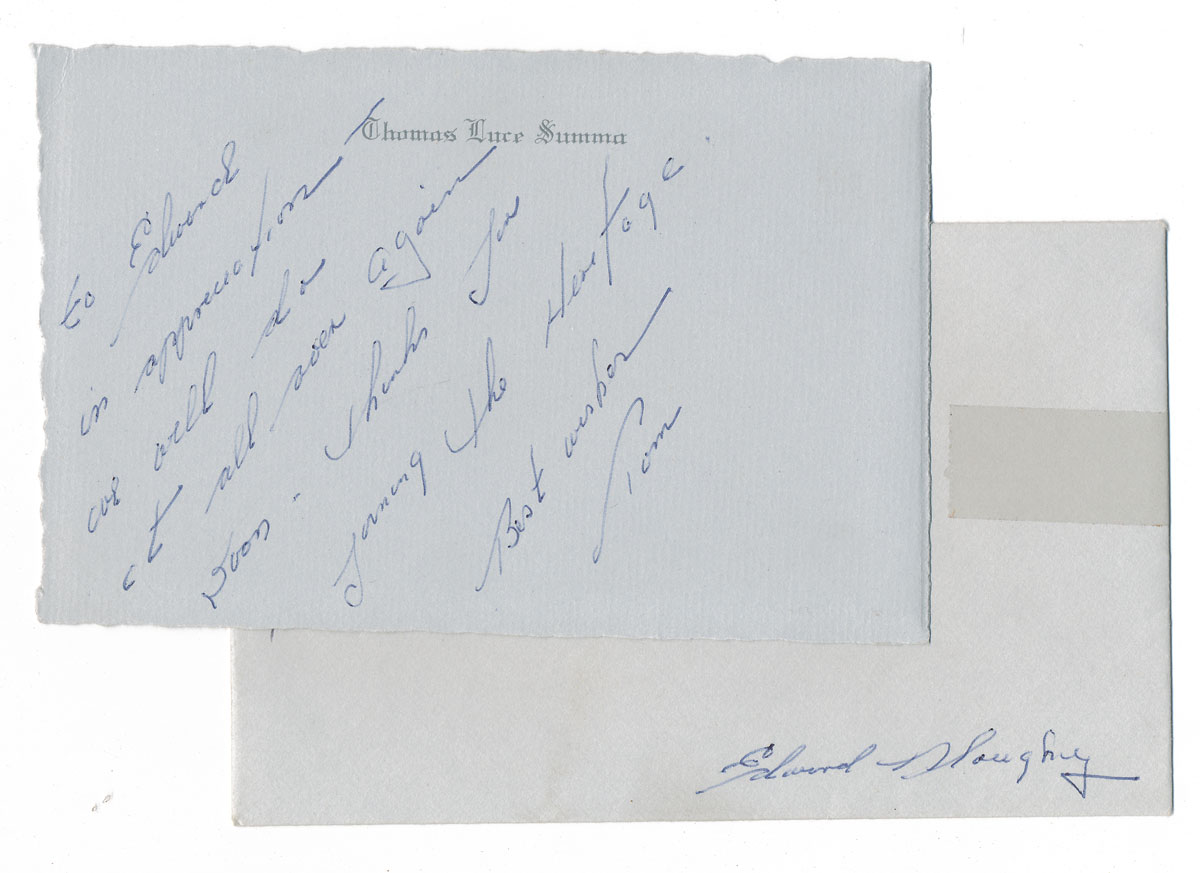 Thomas Luce Summa
to Edward
in appreciation
we will do
it all over again
soon - thanks for
joining the Heritage.
Best wishes
Tom
Edward